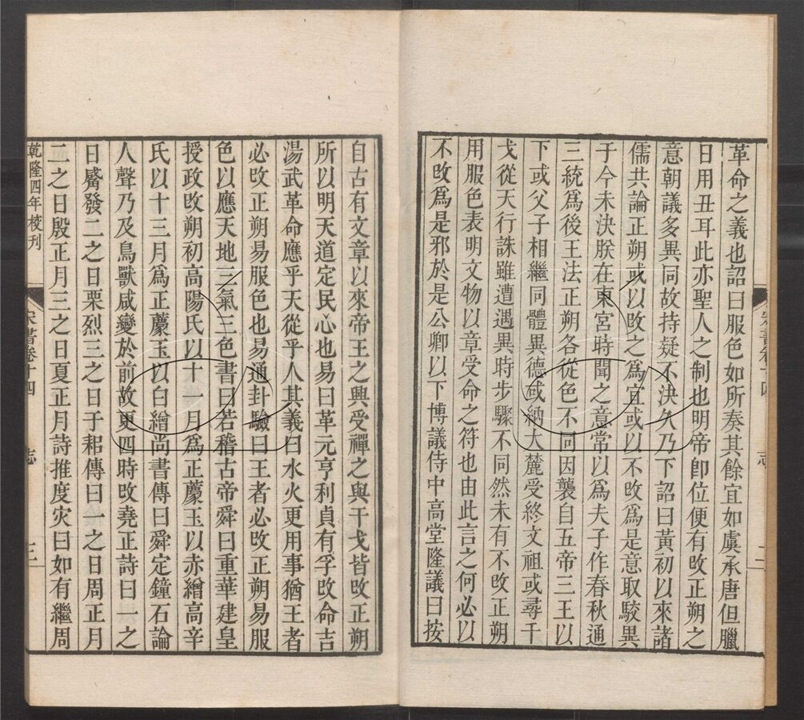 革命之義也詔曰服色如所奏其餘宜如虞承唐但臘
日用丑耳此亦聖人之制也明帝卽位便有改正朔之
意朝議多異同故持疑不決久乃下詔曰黃初以來諸
儒共論正朔或以改之爲宜或以不改爲是意取駮異
于今未決朕在東宮時聞之意常以爲夫子作春秋通
三統爲後王法正朔各從色不同因襲自五帝三王以
下或父子相繼同體異德或納大麓受終文祖或尋干
戈從天行誅雖遭遇異時步驟不同然未有不改正朔
用服色表明文物以章受命之符也由此言之何必以
不改爲是邪於是公卿以下博議侍中高堂隆議曰按
宋書卷十四 志 二
自古有文章以來帝王之興受禪之與干戈皆改正朔
所以明天道定民心也易曰革元亨利貞有孚改命吉
湯武革命應乎天從乎人其義曰水火更用事猶王者
必改正朔易服色也易通卦驗曰王者必改正朔易服
色以應天地三氣三色書曰若稽古帝舜曰重華建皇
授政改朔初高陽氏以十一月爲正薦玉以赤繒高辛
氏以十三月爲正薦玉以白繒尚書傳曰舜定鐘石論
人聲乃及鳥獸咸變於前故更四時改堯正詩曰一之
日觱發二之日栗烈三之日于耜傳曰一之日周正月
二之日殷正月三之日夏正月詩推度灾曰如有繼周
乾隆四年校刊 宋書卷十四 志 三